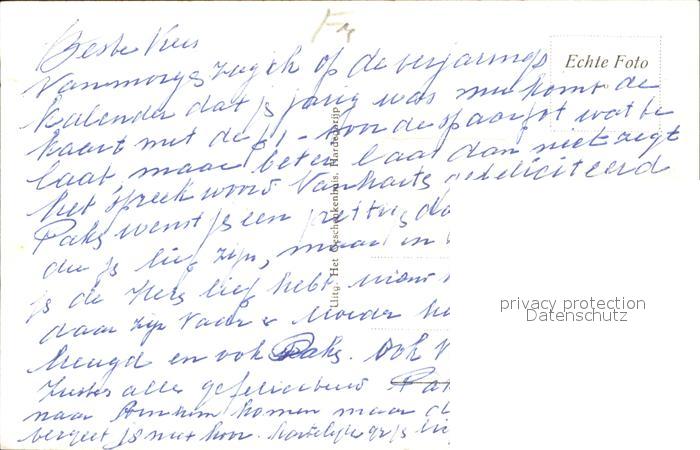 Beste Kees
Vanmorge zag ik op de verjaarings
Echte Foto
kalender dat je jarig was nu komt de
kaart met de f1 - voor de spaarpot wat te
laat maar beter laat dan niet zegt
het spreekwoord Van harte gefeliciteerd
Paks wenst je een prettig da
die je lief zijn, maar in
je de Heer lief hebt.
daar zijn Vader & Moeder
heugd en ook Paks. Ook
alle gefeliciteerd
naar Arnhem komen maar
vergeet je niet hoor. hartelijk
Uitg: Het Geschenkenhuis, Harderwijk
privacy protection
Datenschutz